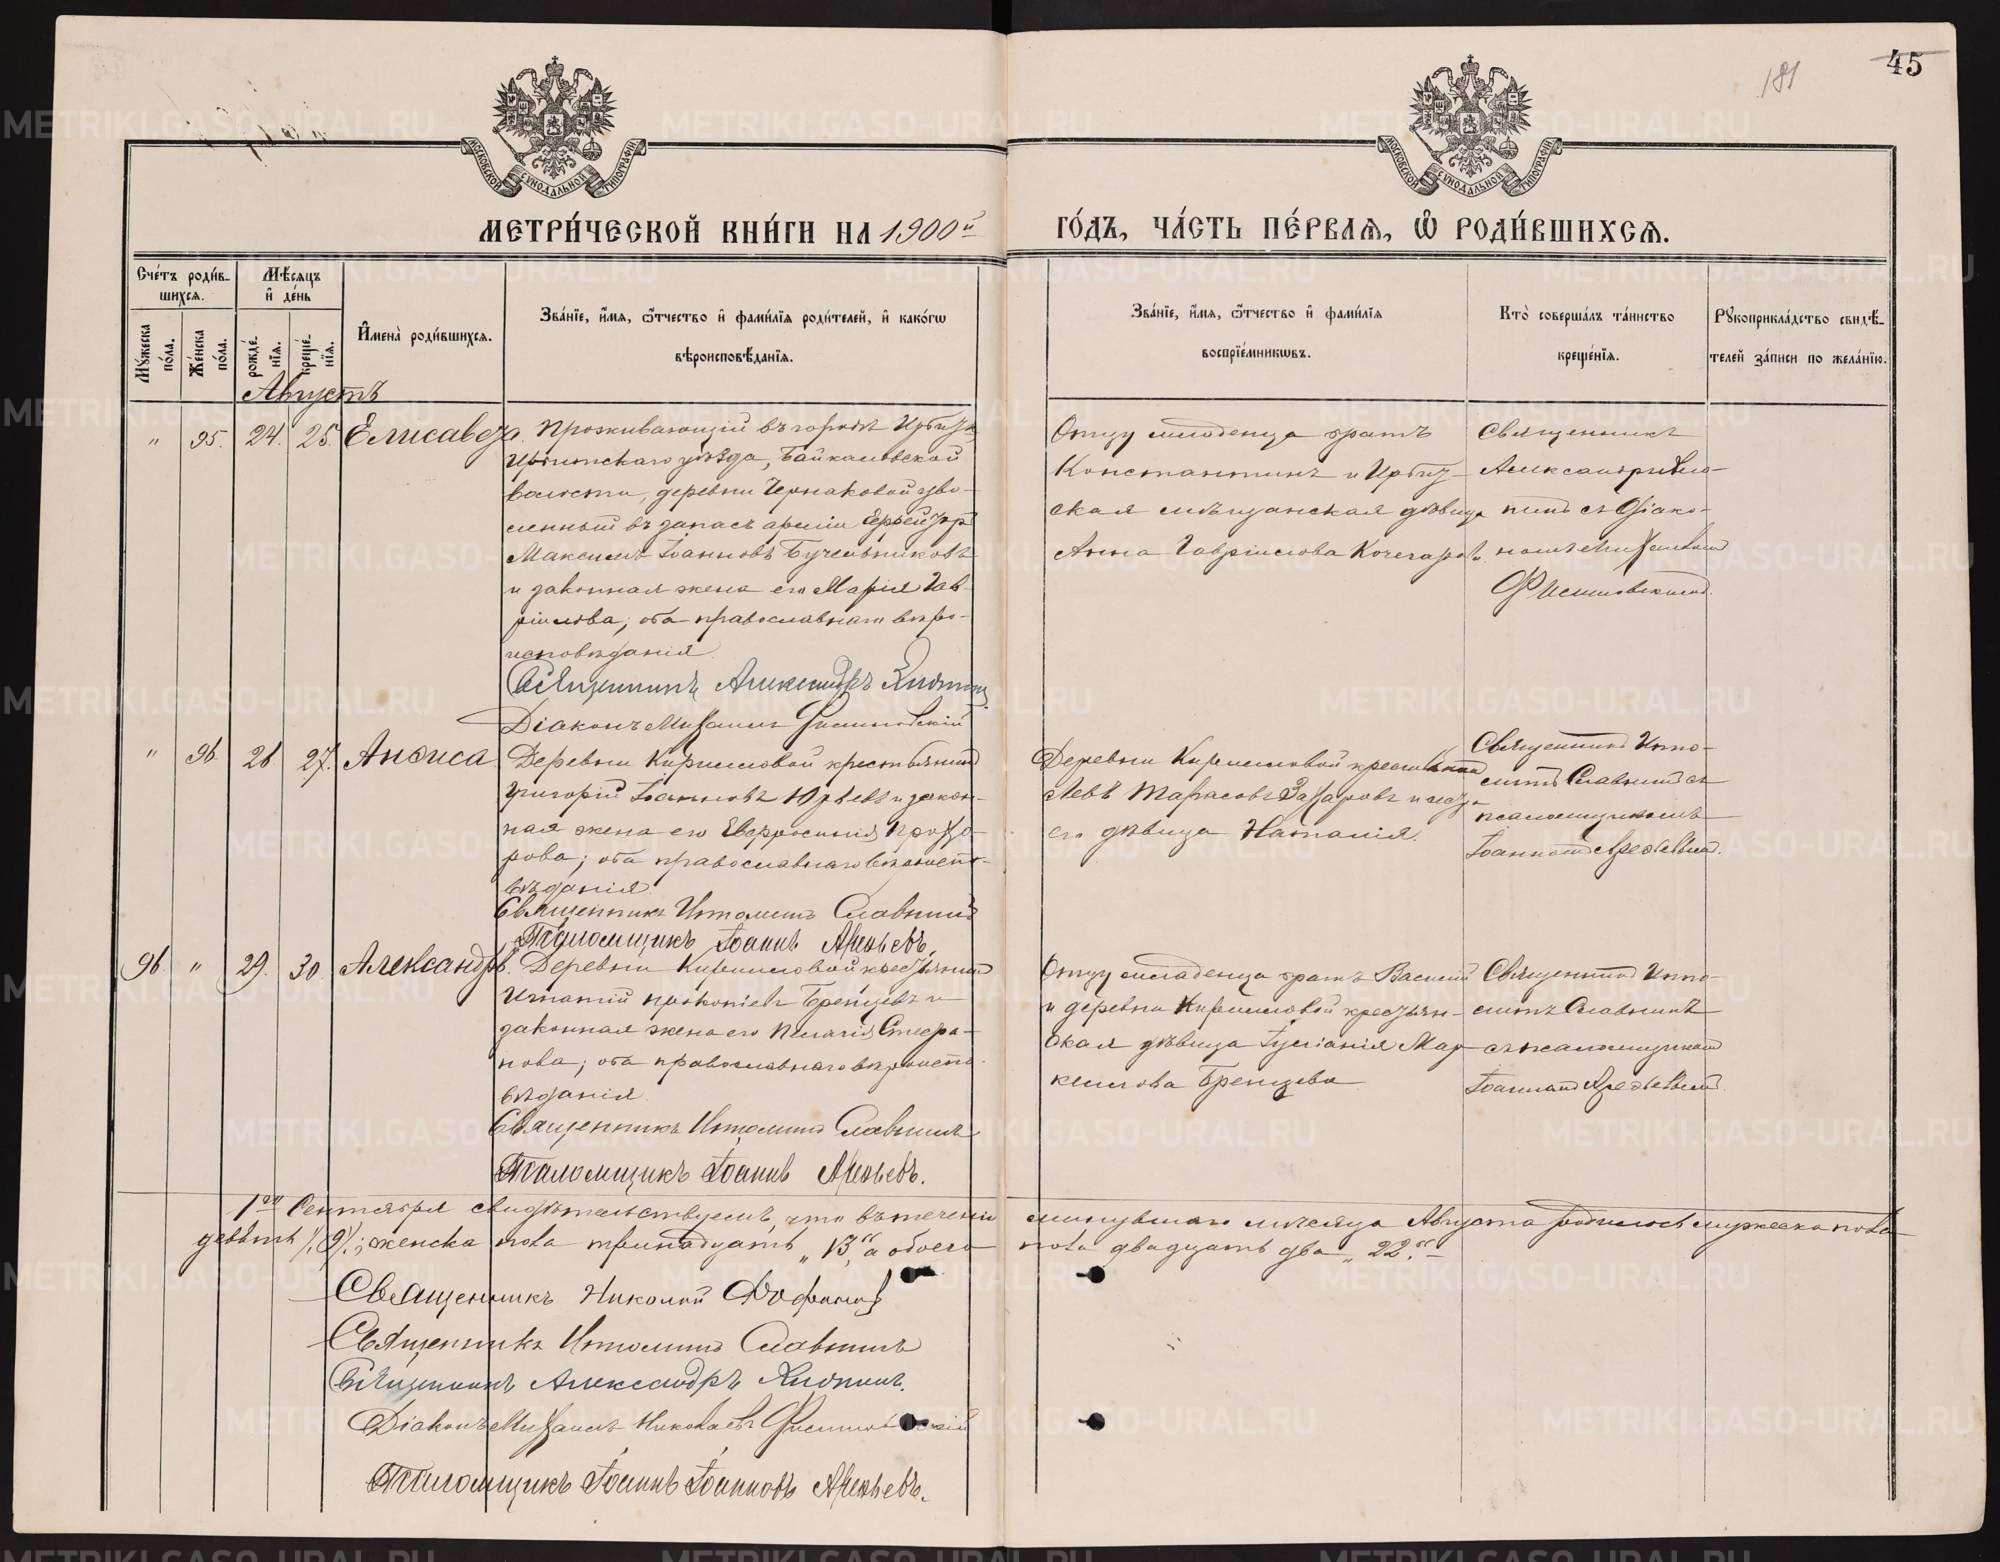 181
45
МОСКОВСКОЙ СѴНОДАЛЬНОЙ ТИПОГРАФІИ
МОСКОВСКОЙ СѴНОДАЛЬНОЙ ТИПОГРАФІИ
МЕТРИ́ЧЕСКОЙ КНИ́ГИ НА 1900й
ГО́ДЪ, ЧА́СТЬ ПЕ́РВАЯ, Ѽ РОДИ́ВШИХСЯ.
Сче́тъ роди́в-
шихся.
Мѣсяцъ
и҆ де́нь
Мꙋжеска по́ла.
Же́нска по́ла.
рожде́нїя.
креще́нїя.
И҆мена̀ роди́вшихся.
Зва́нїе, и҆́мя, ѻ҆́тчество и҆ фами́лїя роди́телей, и҆ како́гѡ
вѣроисповѣ́данїя.
Зва́нїе, и҆́мя, ѻ҆́тчество и҆ фами́лїя
воспрїе́мникѡвъ.
Кто̀ соверша́лъ та́инство
креще́нїя.
Рꙋкоприкла́дство свидѣ́-
телей за́писи по жела́нїю.
Августъ
" 95. 24. 25. Елисавета.
Проживающій въ городѣ Ирбитѣ
Ирбитскаго уѣзда, Байкаловской
волости, деревни Чернаковой уво-
ленный въ запасъ арміи
Максимъ Іоанновъ Бучельниковъ
и законная жена его Марія Гав-
ріилова; оба православнаго вѣро-
исповѣданія.
Священникъ Александръ
Діаконъ Михаилъ
Отцу младенца братъ
Константинъ и Ирбит-
ская мѣщанская дѣвица
Анна Гавріилова Кочегарова.
Священникъ
Александръ
съ Діако-
номъ Михаиломъ
" 96. 26 27. Анфиса
Деревни Кирилловой крестьянинъ
Григорій Іоанновъ Юрьевъ и закон-
ная жена его Евфросинія Прохо-
рова; оба православнаго вѣроиспо-
вѣданія.
Священникъ Ипполитъ Славнинъ
Псаломщикъ Іоаннъ Арефьевъ.
Деревни Кирилловой крестьянинъ
Левъ Тарасовъ Захаровъ и
его дѣвица Наталія.
Священникъ Иппо-
литъ Славнинъ съ
псаломщикомъ
Іоанномъ Арефьевымъ.
96. " 29. 30. Александръ.
Деревни Кирилловой крестьянинъ
Игнатій Прокопіевъ Бренцевъ и
законная жена его Пелагія Стефа-
нова; оба православнаго вѣроиспо-
вѣданія.
Священникъ Ипполитъ Славнинъ
Псаломщикъ Іоаннъ Арефьевъ.
Отцу младенца братъ Василій
и деревни Кирилловой крестьян-
ская дѣвица Іуліанія Мар-
келлова Бренцева
Священникъ Иппо-
литъ Славнинъ
съ псаломщикомъ
Іоанномъ Арефьевымъ.
1го Сентября свидѣтельствуемъ, что въ теченіи минувшаго мѣсяца Августа родилось мужеска пола
девять /:9/:; женска пола тринадцать „13", а обоего пола двадцать два „22."
Священникъ Николай
Священникъ Ипполитъ Славнинъ
Священникъ Александръ
Діаконъ Михаилъ Николаевъ
Псаломщикъ Іоаннъ Іоанновъ Арефьевъ.
METRIKI.GASO-URAL.RU